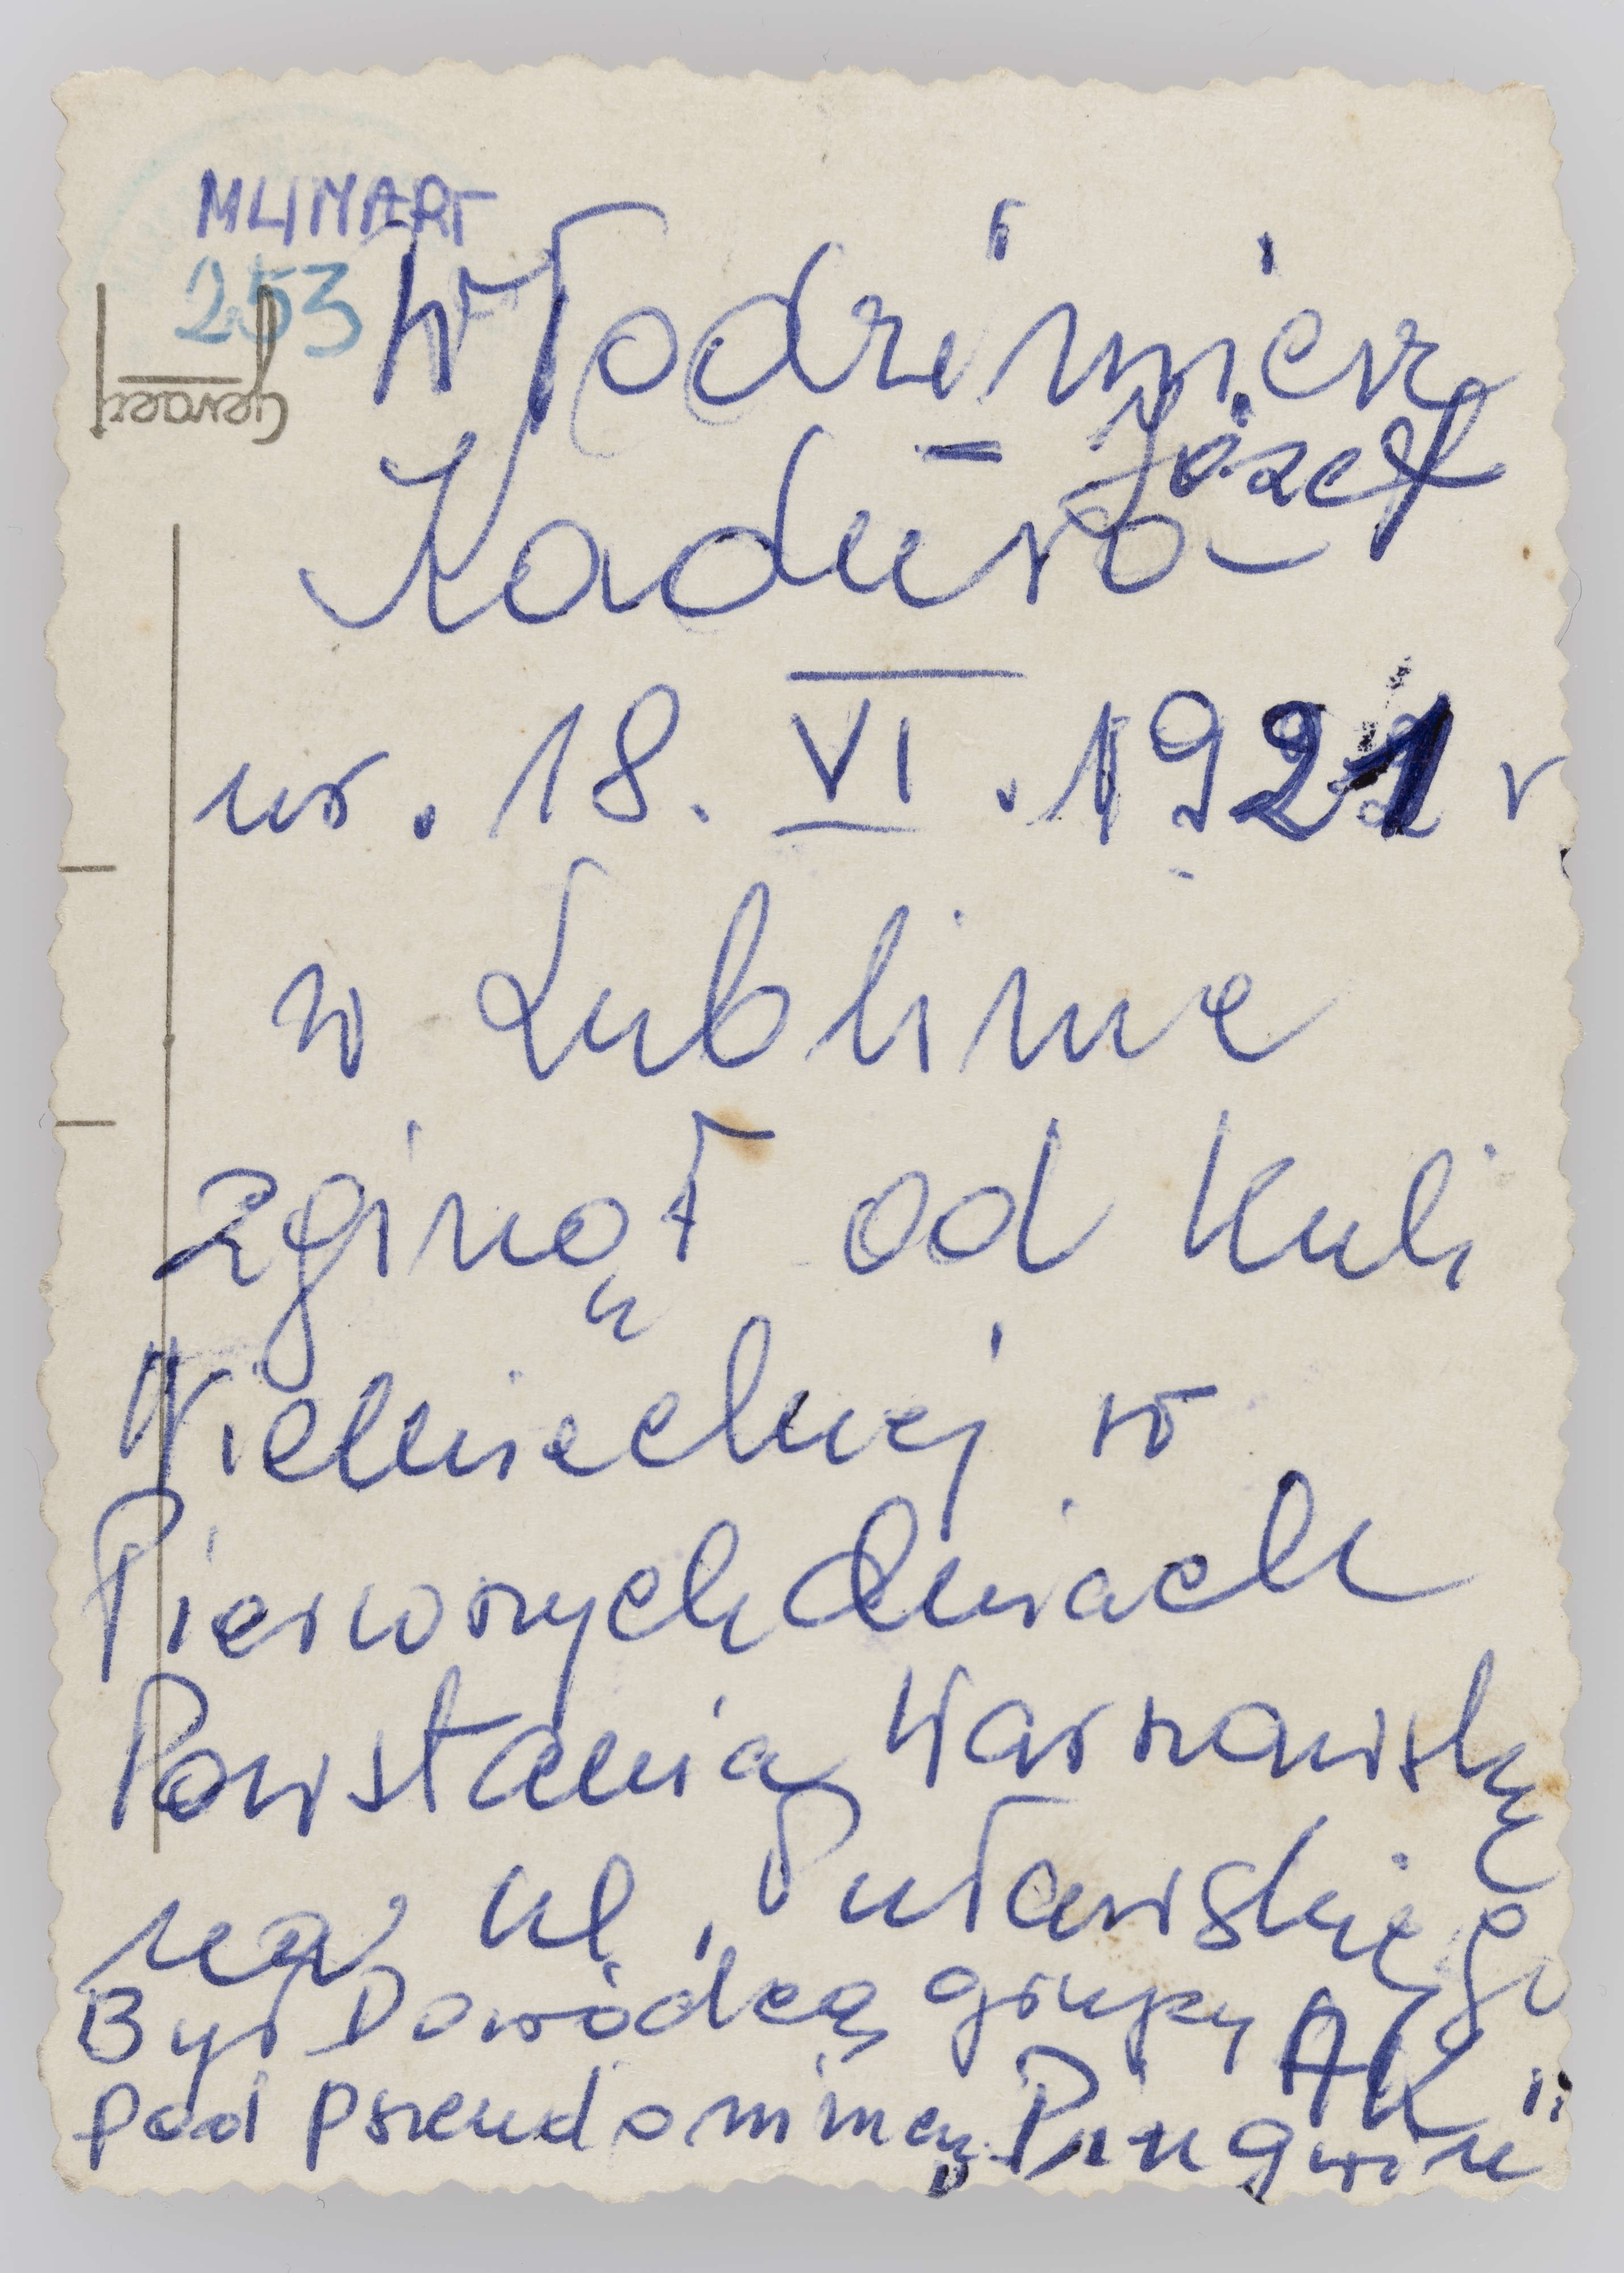 MLIMART
253
Gevaert
Włodzimierz
– Józef
Kaduro
ur. 18. VI. 1921 r
w Lublinie
zginął od kuli
Niemieckiej w
Pierwszych dniach
Powstania Warszawsk
na ul. Puławskiego
Był Dowódcą grupy AK
pod pseudonimem „Pingwin"